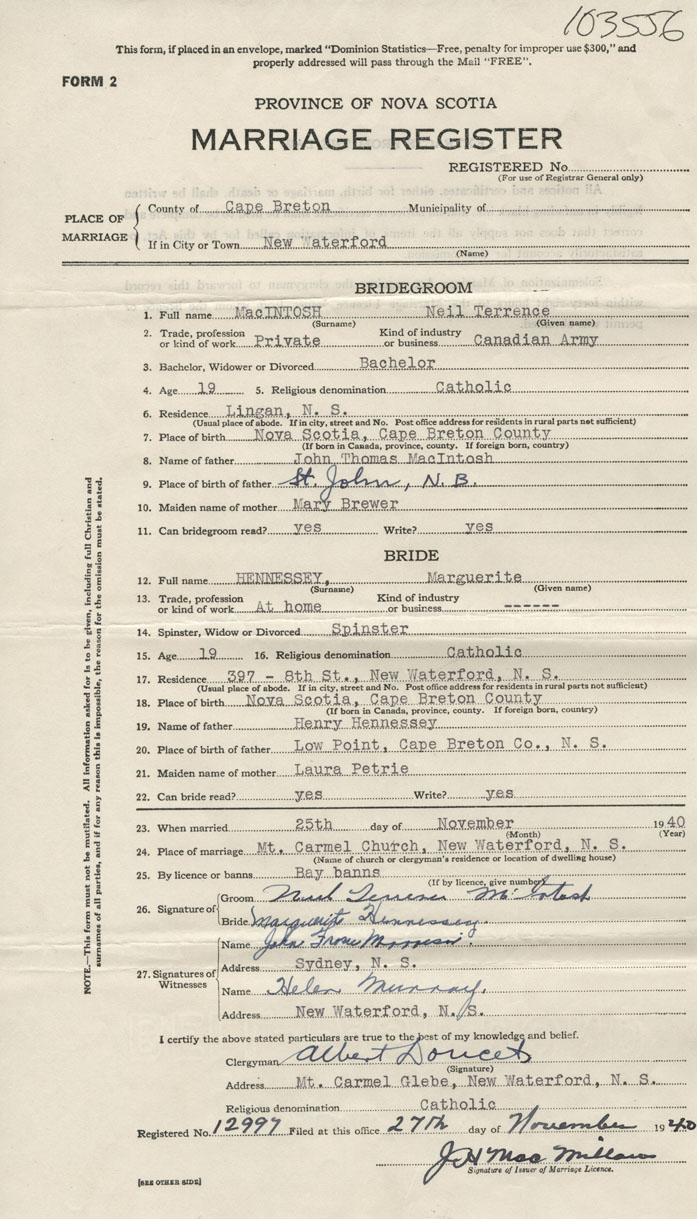 103556
This form, if placed in an envelope, marked "Dominion Statistics—Free, penalty for improper use $300," and
properly addressed will pass through the Mail "FREE".
FORM 2
PROVINCE OF NOVA SCOTIA
MARRIAGE REGISTER
REGISTERED No
(For use of Registrar General only)
PLACE OF MARRIAGE
County of Cape Breton Municipality of
If in City or Town New Waterford
(Name)
BRIDEGROOM
1. Full name MacINTOSH Neil Terrence
(Surname) (Given name)
2. Trade, profession or kind of work Private Kind of industry or business Canadian Army
3. Bachelor, Widower or Divorced Bachelor
4. Age 19 5. Religious denomination Catholic
6. Residence Lingan, N. S.
(Usual place of abode. If in city, street and No. Post office address for residents in rural parts not sufficient)
7. Place of birth Nova Scotia, Cape Breton County
(If born in Canada, province, county. If foreign born, country)
8. Name of father John Thomas MacIntosh
9. Place of birth of father St. John, N.B.
10. Maiden name of mother Mary Brewer
11. Can bridegroom read? yes Write? yes
BRIDE
12. Full name HENNESSEY, Marguerite
(Surname) (Given name)
13. Trade, profession or kind of work At home Kind of industry or business ------
14. Spinster, Widow or Divorced Spinster
15. Age 19 16. Religious denomination Catholic
17. Residence 397 - 8th St., New Waterford, N. S.
(Usual place of abode. If in city, street and No. Post office address for residents in rural parts not sufficient)
18. Place of birth Nova Scotia, Cape Breton County
(If born in Canada, province, county. If foreign born, country)
19. Name of father Henry Hennessey
20. Place of birth of father Low Point, Cape Breton Co., N. S.
21. Maiden name of mother Laura Petrie
22. Can bride read? yes Write? yes
23. When married 25th day of November 1940
(Month) (Year)
24. Place of marriage Mt. Carmel Church, New Waterford, N. S.
(Name of church or clergyman's residence or location of dwelling house)
25. By licence or banns Bay banns
(If by licence, give number)
26. Signature of
Groom Terrence McIntosh
Bride Marguerite Hennessey
27. Signatures of Witnesses
Name John
Address Sydney, N. S.
Name Helen Murray
Address New Waterford, N. S.
I certify the above stated particulars are true to the best of my knowledge and belief.
Clergyman Albert Doucet
(Signature)
Address Mt. Carmel Glebe, New Waterford, N. S.
Religious denomination Catholic
Registered No. 12997 Filed at this office 27th day of November 1940
J H MacMillan
Signature of Issuer of Marriage Licence.
[SEE OTHER SIDE]
NOTE.—This form must not be mutilated. All information asked for is to be given, including full Christian and
surnames of all parties, and if for any reason this is impossible, the reason for the omission must be stated.